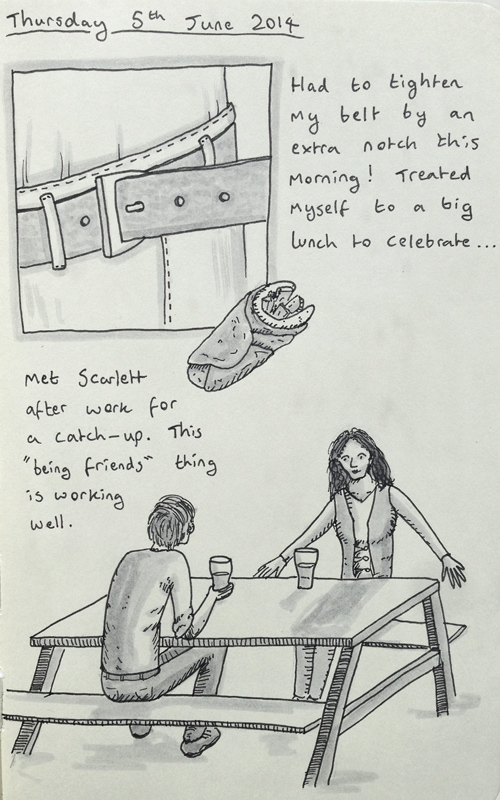 Thursday 5th June 2014
Had to tighten
my belt by an
extra notch this
morning! Treated
myself to a big
lunch to celebrate...
Met Scarlett
after work for
a catch-up. This
"being friends" thing
is working
well.